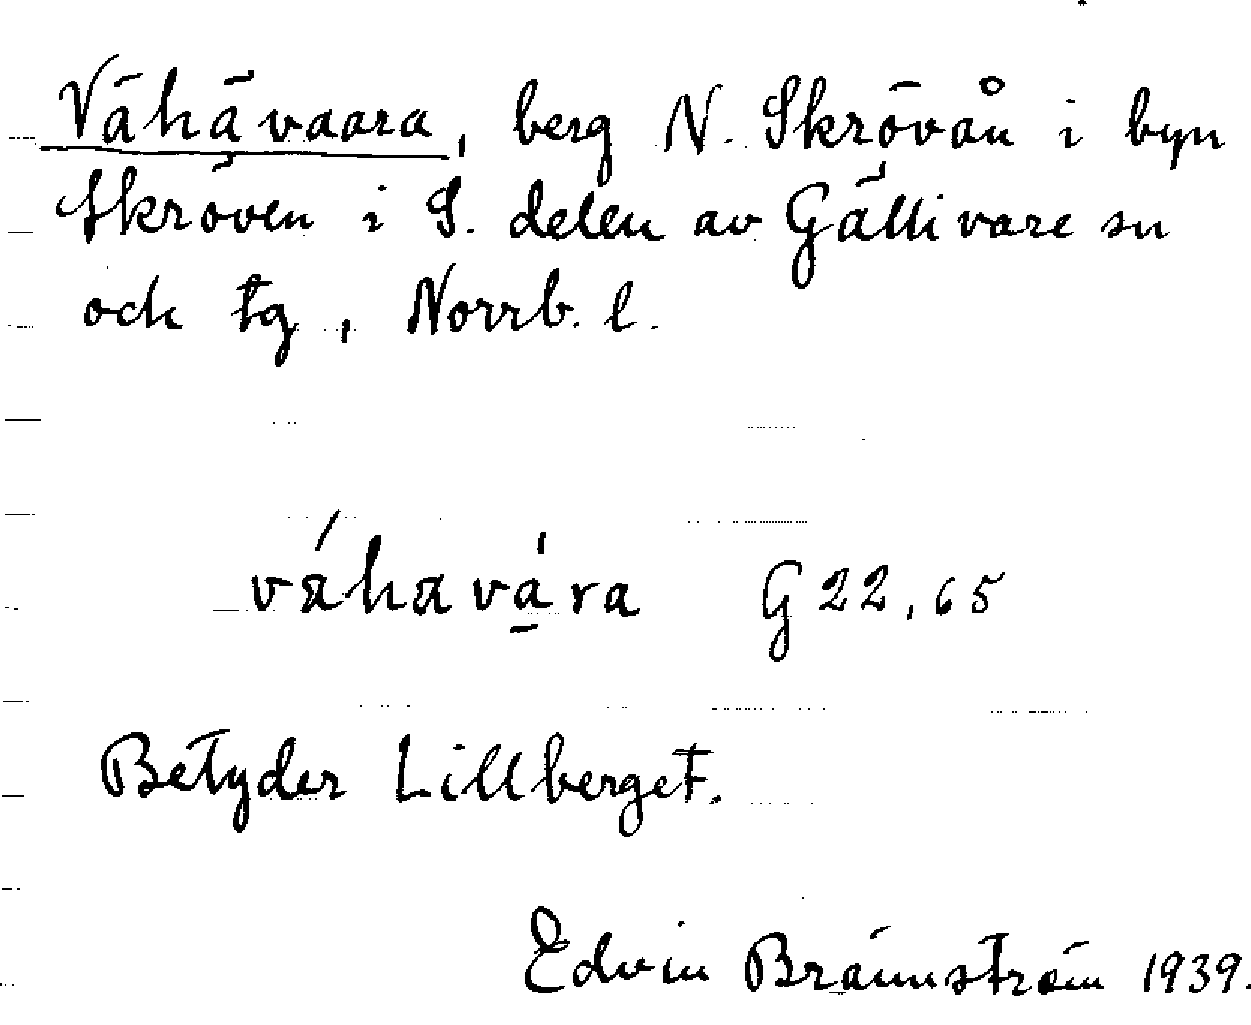 Vähävaara, berg N. Skrövån i byn
Skröven i S. delen av Gällivare sn
och tg, Norrb. l.
váhavá̱ra G 22,65
Betyder Lillberget.
Edvin Brännström 1939.